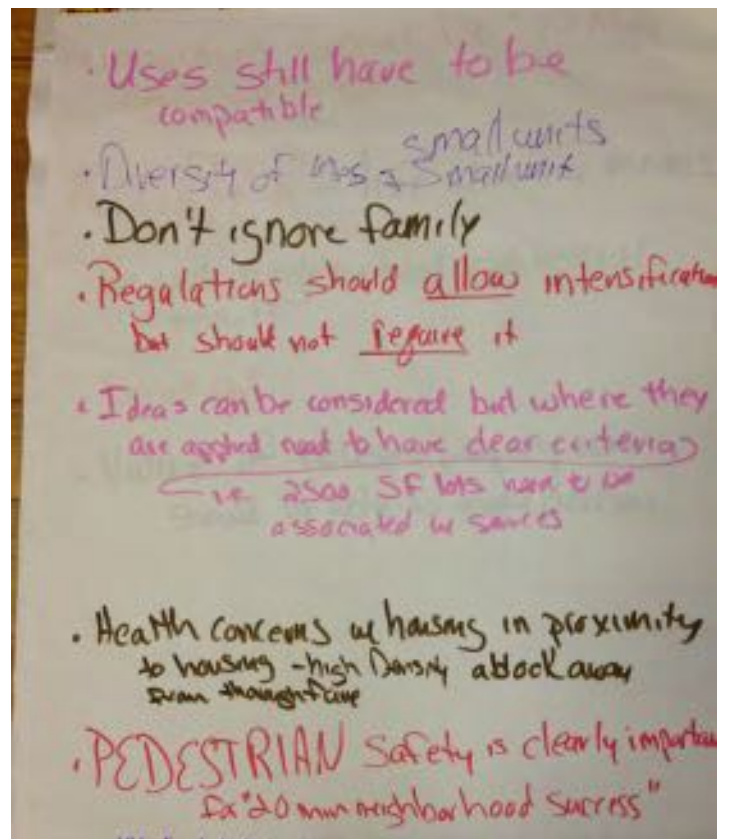 · Uses still have to be
compatible
small units
· Diversity of uses & Small unit
· Don't ignore family
· Regulations should allow intensification
but should not require it
· Ideas can be considered but where they
are applied need to have clear criteria
i.e. 2500 SF lots need to be
associated w services
· Health concerns w housing in proximity
to housing - high Density a block away
from thoroughfare
· PEDESTRIAN Safety is clearly important
for "20 min neighborhood success"